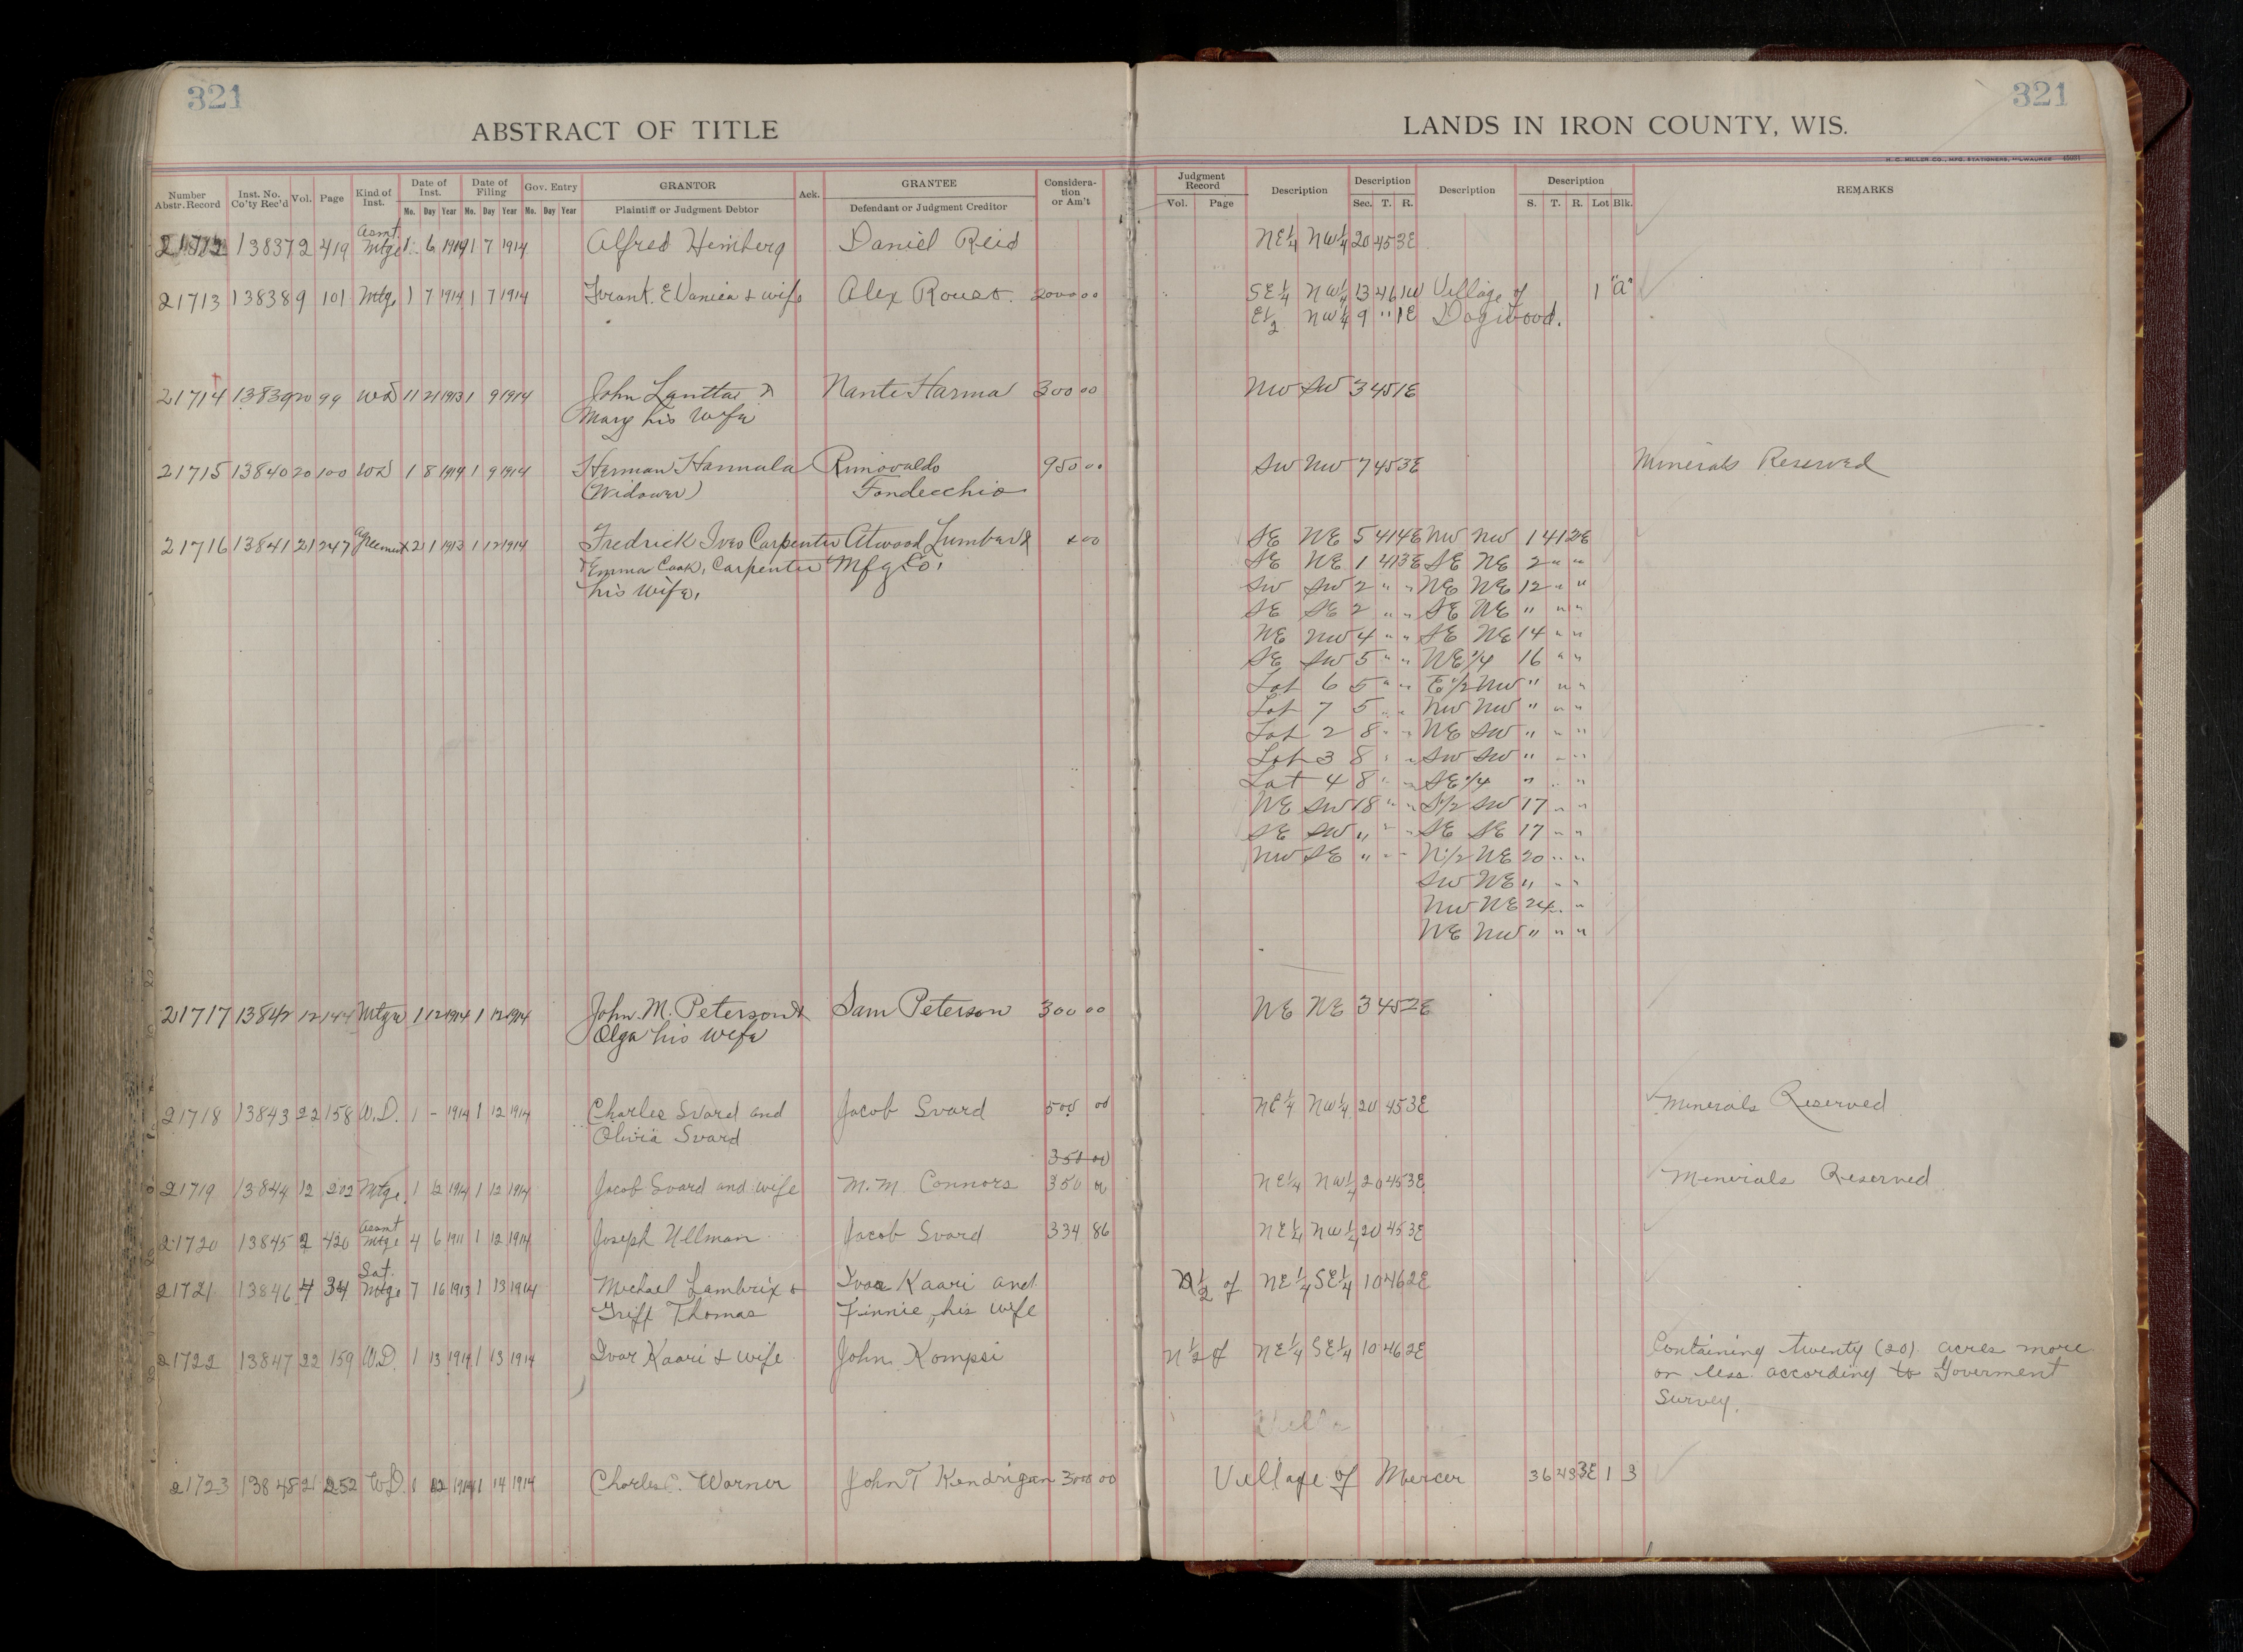 321
321
ABSTRACT OF TITLE
LANDS IN IRON COUNTY, WIS.
H. C. MILLER CO., MFG. STATIONERS, MILWAUKEE
Number Abstr. Record Inst. No. Co'ty Rec'd Vol. Page Kind of Inst. Date of Inst. Mo. Day Year Date of Filing Mo. Day Year Gov. Entry Mo. Day Year GRANTOR Plaintiff or Judgment Debtor Ack. GRANTEE Defendant or Judgment Creditor Consideration or Am't
Judgment Record Vol. Page Description Description Sec. T. R. Description Description S. T. R. Lot Blk. REMARKS
21712 13837 2 419 Asmt Mtge 1 6 1914 1 7 1914 Alfred Heimberg Daniel Reid NE¼ NW¼ 20 45 3E
21713 13838 9 101 Mtge 1 7 1914 1 7 1914 Frank E Vaniea & wife Alex Roust. 2000 00 SE¼ NW¼ 13 46 1W Village of 1 "A"
E½ NW¼ 9 " 1E Dogwood.
21714 13839 20 99 WD 11 21 1913 1 9 1914 John Lanttai & Nante Harma 300 00 NW SW 3 45 1E
Mary his wife
21715 13840 20 100 WD 1 8 1914 1 9 1914 Herman Hannula Rimovaldo 950 00 SW NW 7 45 3E Minerals Reserved
(Widower) Fondecchio
21716 13841 21 247 Agreement 2 1 1913 1 12 1914 Fredrick Ives Carpenter Atwood Lumber & 1 00 SE NE 5 41 4E NW NW 1 41 2E
& Emma Cook, Carpenter Mfg Co. SE NE 1 41 3E SE NE 2 " "
his wife, SW SW 2 " " NE NE 12 " "
SE SE 2 " " SE NE " " "
NE NW 4 " " SE NE 14 " "
SE SW 5 " " NE 1/4 16 " "
Lot 6 5 " " E 1/2 NW " " "
Lot 7 5 " " NW NW " " "
Lot 2 8 " " NE SW " " "
Lot 3 8 " " SW SW " " "
Lot 4 8 " " SE 1/4 " " "
NE SW 18 " " S 1/2 SW 17 " "
SE SW " " " SE SE 17 " "
NW SE " " " N 1/2 NE 20 " "
SW NE " " "
NW NE 24 " "
NE NW " " "
21717 13842 12 144 Mtge 1 12 1914 1 12 1914 John. M. Peterson & Sam Peterson 300 00 NE NE 3 45 2E
Olga his wife
21718 13843 22 158 W.D. 1 - 1914 1 12 1914 Charles Svard and Jacob Svard 500 00 NE¼ NW¼ 20 45 3E Minerals Reserved
Olivia Svard
350 00
21719 13844 12 202 Mtge 1 12 1914 1 12 1914 Jacob Svard and wife M. M Connors 350 00 NE¼ NW¼ 20 45 3E Minerals Reserved
21720 13845 2 420 Asmt Mtge 4 6 1911 1 12 1914 Joseph Ullman Jacob Svard 334 86 NE¼ NW¼ 20 45 3E
21721 13846 4 34 Sat. Mtge 7 16 1913 1 13 1914 Michael Lambrix & Ivar Kaari and N½ of NE¼ SE¼ 10 46 2E
Griff Thomas Finnie, his wife
21722 13847 22 159 W.D. 1 13 1914 1 13 1914 Ivar Kaari & wife John Kompsi N½ of NE¼ SE¼ 10 46 2E Containing twenty (20) acres more
or less according to Goverment
Survey.
21723 13848 21 252 W.D. 1 12 1914 1 14 1914 Charles C. Warner John T Kendrigan 3000 00 Village of Mercer 36 43 3E 1 3